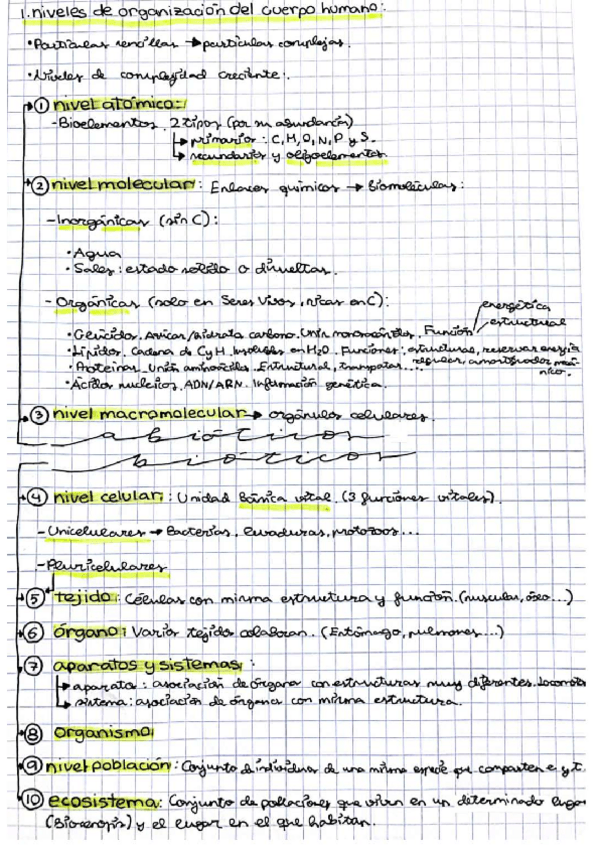 1. niveles de organización del cuerpo humano:
• Partículas sencillas → partículas complejas.
• Niveles de complejidad creciente:
① nivel atómico:
- Bioelementos. 2 tipos (por su abundancia)
→ primarios: C, H, O, N, P y S.
→ secundarios y oligoelementos.
② nivel molecular: Enlaces químicos → Biomoléculas:
- Inorgánicas (sin C):
• Agua
• Sales: estado sólido o disueltas.
- Orgánicas (solo en Seres Vivos, ricas en C):
• Glúcidos. Azúcar/hidrato carbono. Unión monosacáridos. Función energética / estructural
• Lípidos. Cadena de C y H. Insolubles en H2O. Funciones: estructural, reservar energía
• Proteínas. Unión aminoácidos. Estructural, transportar.... regular, amortiguador mecánico.
• Ácidos nucleicos. ADN/ARN. Información genética.
③ nivel macromolecular → orgánulos celulares.
abióticos
bióticos
④ nivel celular: Unidad Básica vital. (3 funciones vitales).
- Unicelulares → Bacterias, levaduras, protozoos...
- Pluricelulares
⑤ tejido: Células con misma estructura y función. (muscular, óseo...)
⑥ órgano: Varios tejidos colaboran. (Estómago, pulmones...)
⑦ aparatos y sistemas:
→ aparato: asociación de órganos con estructuras muy diferentes. Locomotor
→ sistema: asociación de órganos con misma estructura.
⑧ organismo
⑨ nivel población: Conjunto de individuos de una misma especie que comparten e y t.
⑩ ecosistema: Conjunto de poblaciones que viven en un determinado lugar
(Biocenosis) y el lugar en el que habitan.